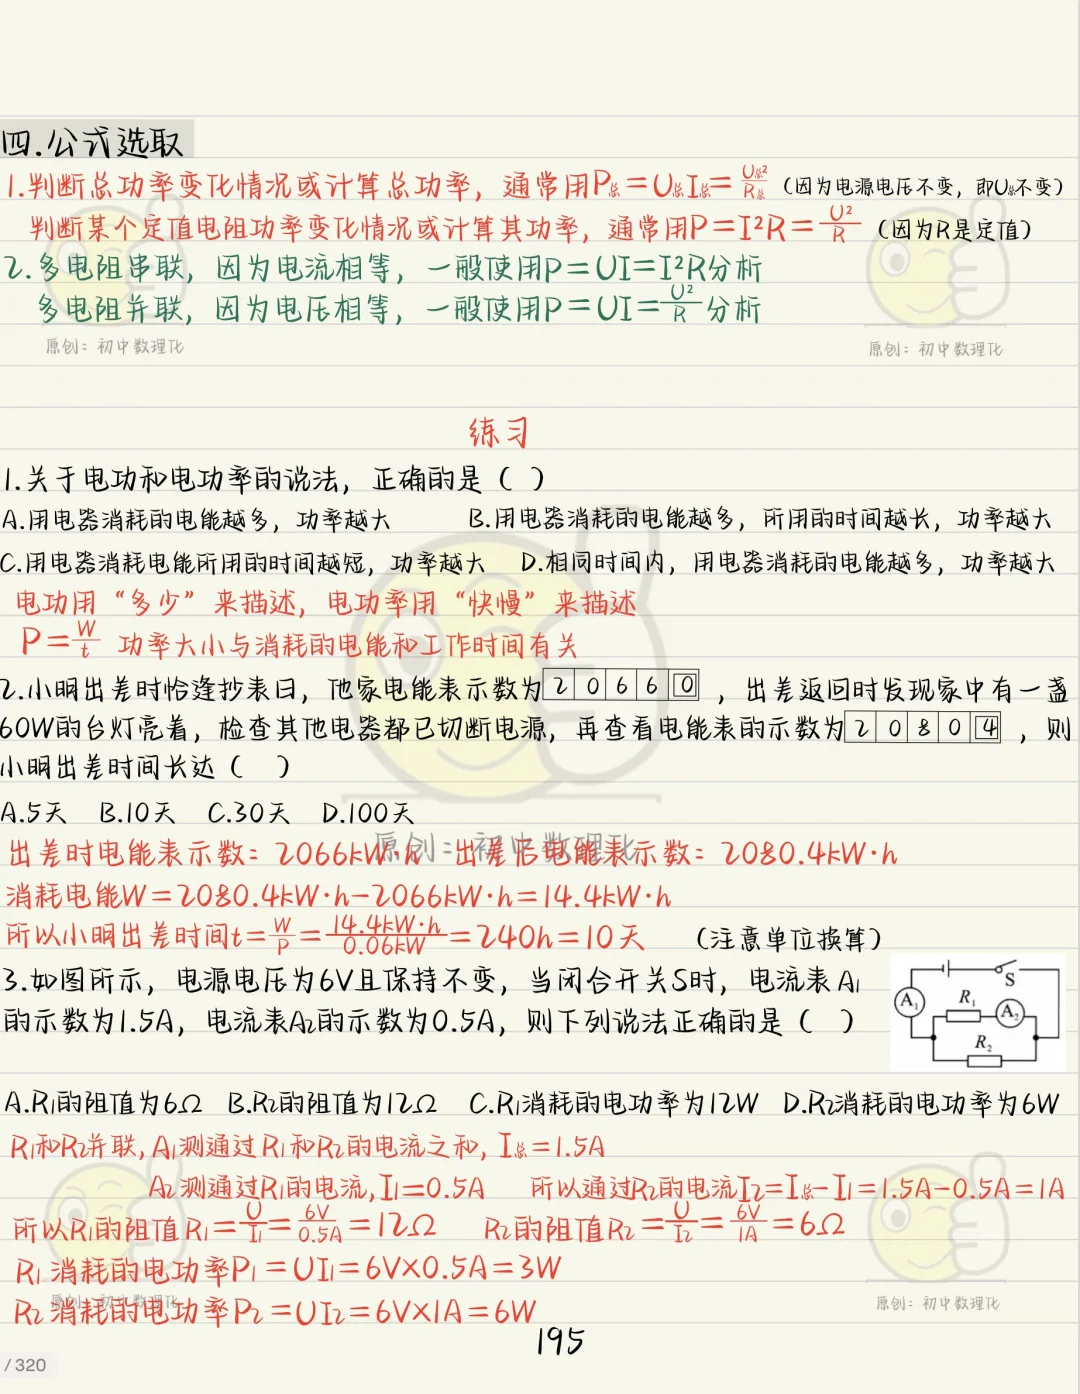 四.公式选取
1.判断总功率变化情况或计算总功率，通常用P总=U总I总=U总²/R总（因为电源电压不变，即U总不变）
判断某个定值电阻功率变化情况或计算其功率，通常用P=I²R=U²/R（因为R是定值）
2.多电阻串联，因为电流相等，一般使用P=UI=I²R分析
多电阻并联，因为电压相等，一般使用P=UI=U²/R分析
原创：初中数理化
原创：初中数理化
练习
1.关于电功和电功率的说法，正确的是（ ）
A.用电器消耗的电能越多，功率越大 B.用电器消耗的电能越多，所用的时间越长，功率越大
C.用电器消耗电能所用的时间越短，功率越大 D.相同时间内，用电器消耗的电能越多，功率越大
电功用“多少”来描述，电功率用“快慢”来描述
P=W/t 功率大小与消耗的电能和工作时间有关
2.小明出差时恰逢抄表日，他家电能表示数为2 0 6 6 0，出差返回时发现家中有一盏
60W的台灯亮着，检查其他电器都已切断电源，再查看电能表的示数为2 0 8 0 4，则
小明出差时间长达（ ）
A.5天 B.10天 C.30天 D.100天
原创：初中数理化
出差时电能表示数：2066kW·h 出差后电能表示数：2080.4kW·h
消耗电能W=2080.4kW·h-2066kW·h=14.4kW·h
所以小明出差时间t=W/P=14.4kW·h/0.06kW=240h=10天（注意单位换算）
3.如图所示，电源电压为6V且保持不变，当闭合开关S时，电流表A1
的示数为1.5A，电流表A2的示数为0.5A，则下列说法正确的是（ ）
S
A₁ R₁ A₂
R₂
A.R1的阻值为6Ω B.R2的阻值为12Ω C.R1消耗的电功率为12W D.R2消耗的电功率为6W
R1和R2并联，A1测通过R1和R2的电流之和，I总=1.5A
A2测通过R1的电流，I1=0.5A 所以通过R2的电流I2=I总-I1=1.5A-0.5A=1A
所以R1的阻值R1=U/I1=6V/0.5A=12Ω R2的阻值R2=U/I2=6V/1A=6Ω
R1消耗的电功率P1=UI1=6V×0.5A=3W
原创：初中数理化
原创：初中数理化
R2消耗的电功率P2=UI2=6V×1A=6W
195
/ 320